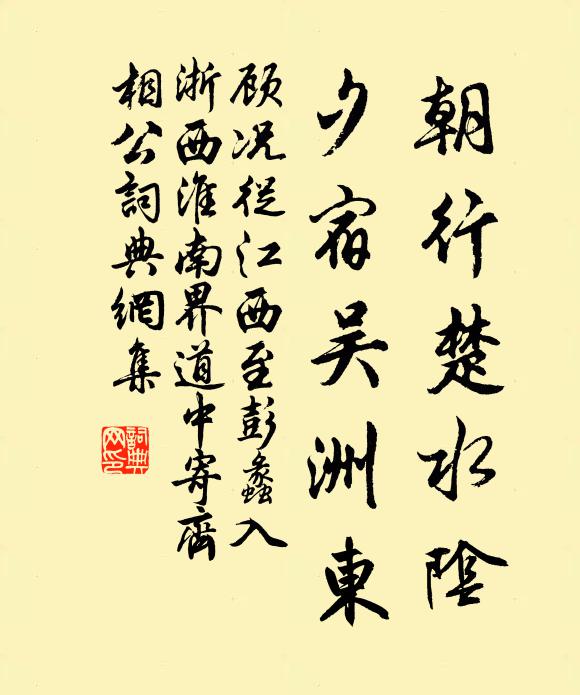 朝行楚水陰
夕宿吴洲東
顾况從江西至彭蠡入
浙西淮南界道中寄齊
相公詞典網集
詞典
网印